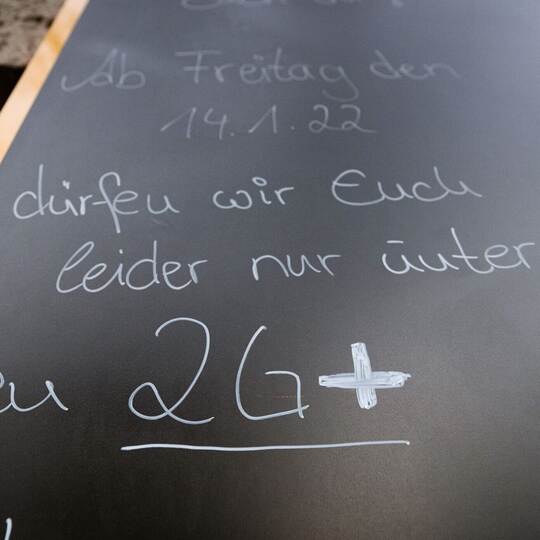 Ab Freitag den
14.1.22
dürfen wir Euch
leider nur unter
2G+